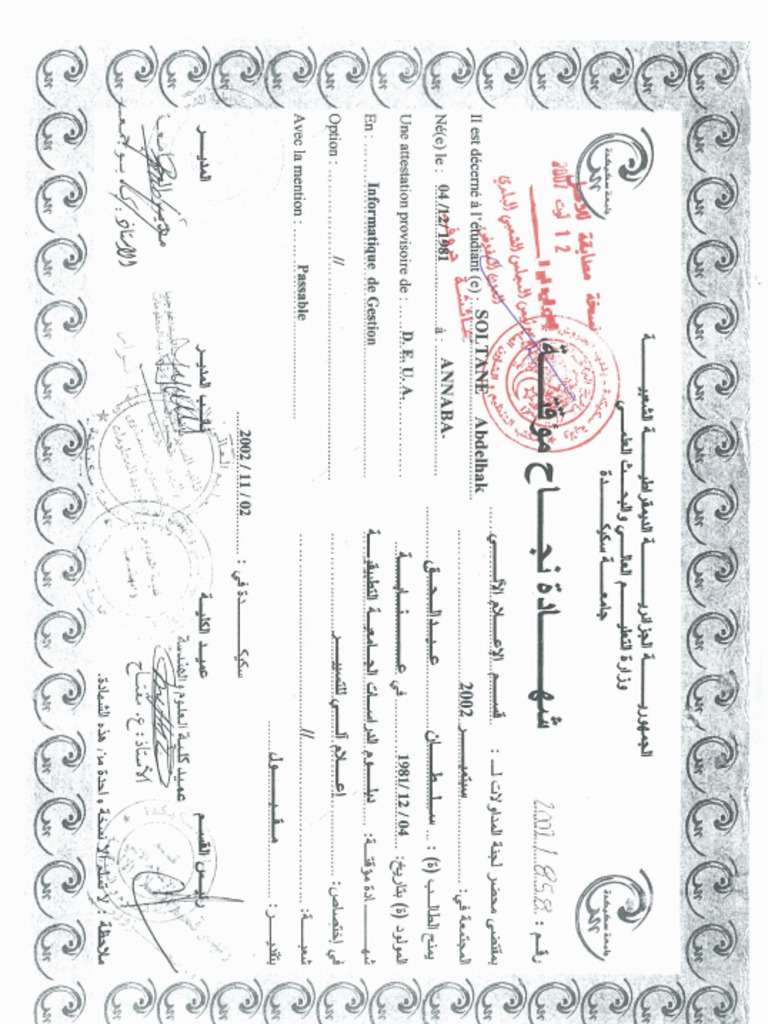 الجمهورية الجزائرية الديمقراطية الشعبية
وزارة التعليم العالي والبحث العلمي
جامعة سكيكدة
جامعة سكيكدة
جامعة سكيكدة
نسخة مطابقة للأصل
12 أوت 2007
رقم : 2002/858
شهادة نجاح مؤقتة
بمقتضى محضر لجنة المداولات لـ : قسم الإعلام الآلي
المجتمعة في : سبتمبر 2002
يمنح الطالب (ة) : سلطان عبدالحق
المولود (ة) بتاريخ: 1981/12/04 في عنابة
شهادة مؤقتة: دبلوم الدراسات الجامعية التطبيقية
في إختصاص: إعلام آلي للتسيير
شعبة: //
بتقدير: مقبول
Il est décerné à l'étudiant (e) : SOLTANE Abdelhak
Né(e) le : 04/12/1981 à : ANNABA-
Une attestation provisoire de : D. E. U. A.
En : Informatique de Gestion
Option : //
Avec la mention : Passable
سكيكدة في : 2002/11/02
رئيس القسم
عميد الكلية
نائب المدير
المدير
عميد كلية العلوم والهندسة
الأستاذ: ع. مفتاح
ملاحظة : لا تسلم إلا نسخة واحدة من هذه الشهادة.